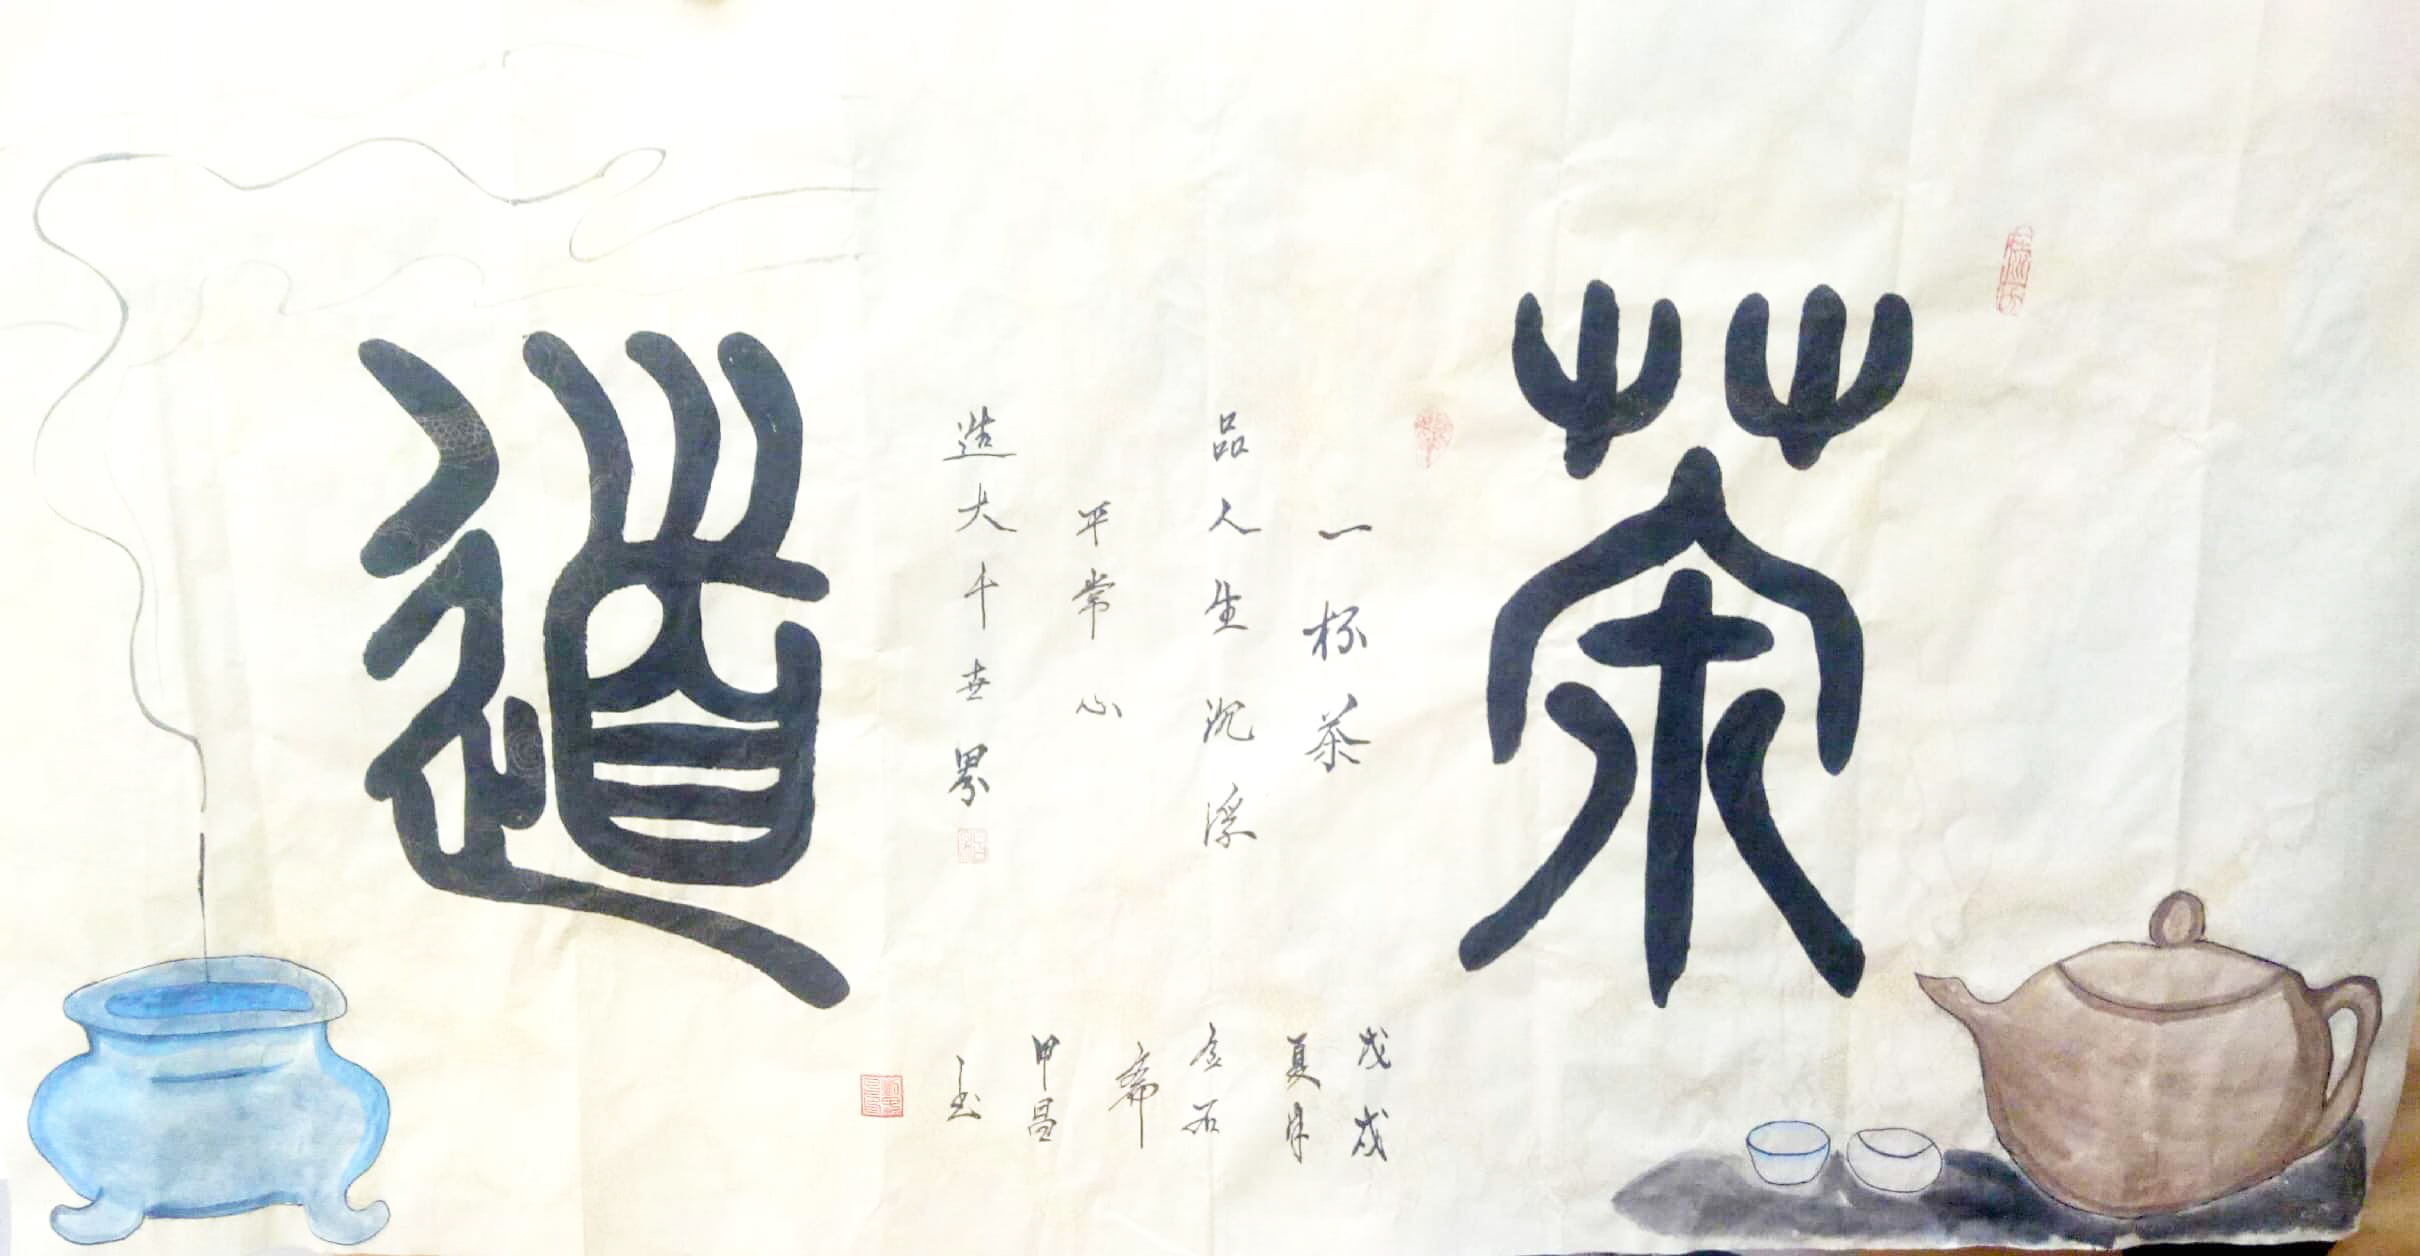 茶
一杯茶
品人生沉浮
平常心
造大千世界
道
戊戌
夏月
金石
斋
甲昌
玉